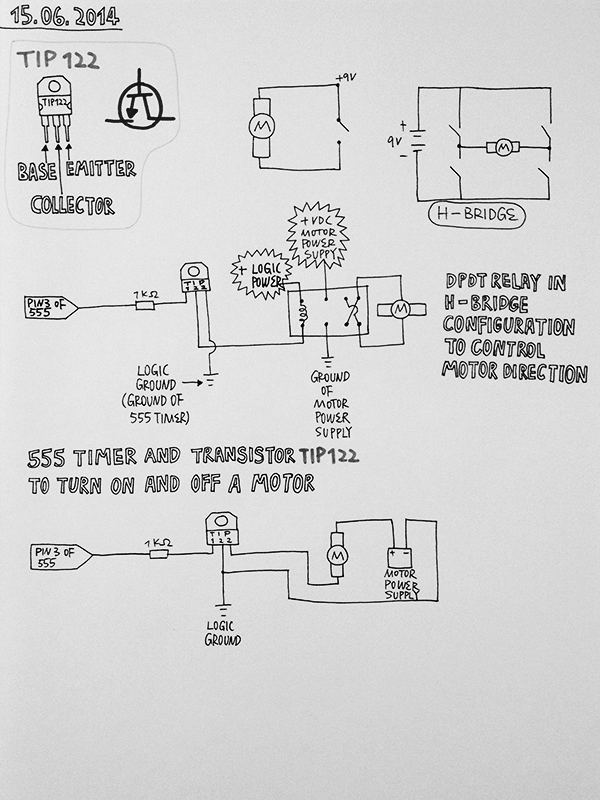 15.06.2014
TIP 122
TIP122
BASE EMITTER
COLLECTOR
M
+9V
+
9V
-
M
H-BRIDGE
+ VDC
MOTOR
POWER
SUPPLY
+ LOGIC
POWER
TIP
122
PIN3 OF
555
1KΩ
M
DPDT RELAY IN
H-BRIDGE
CONFIGURATION
TO CONTROL
MOTOR DIRECTION
LOGIC
GROUND
(GROUND OF
555 TIMER)
GROUND
OF
MOTOR
POWER
SUPPLY
555 TIMER AND TRANSISTOR TIP122
TO TURN ON AND OFF A MOTOR
TIP
122
PIN 3 OF
555
1KΩ
M
+ -
MOTOR
POWER
SUPPLY
LOGIC
GROUND